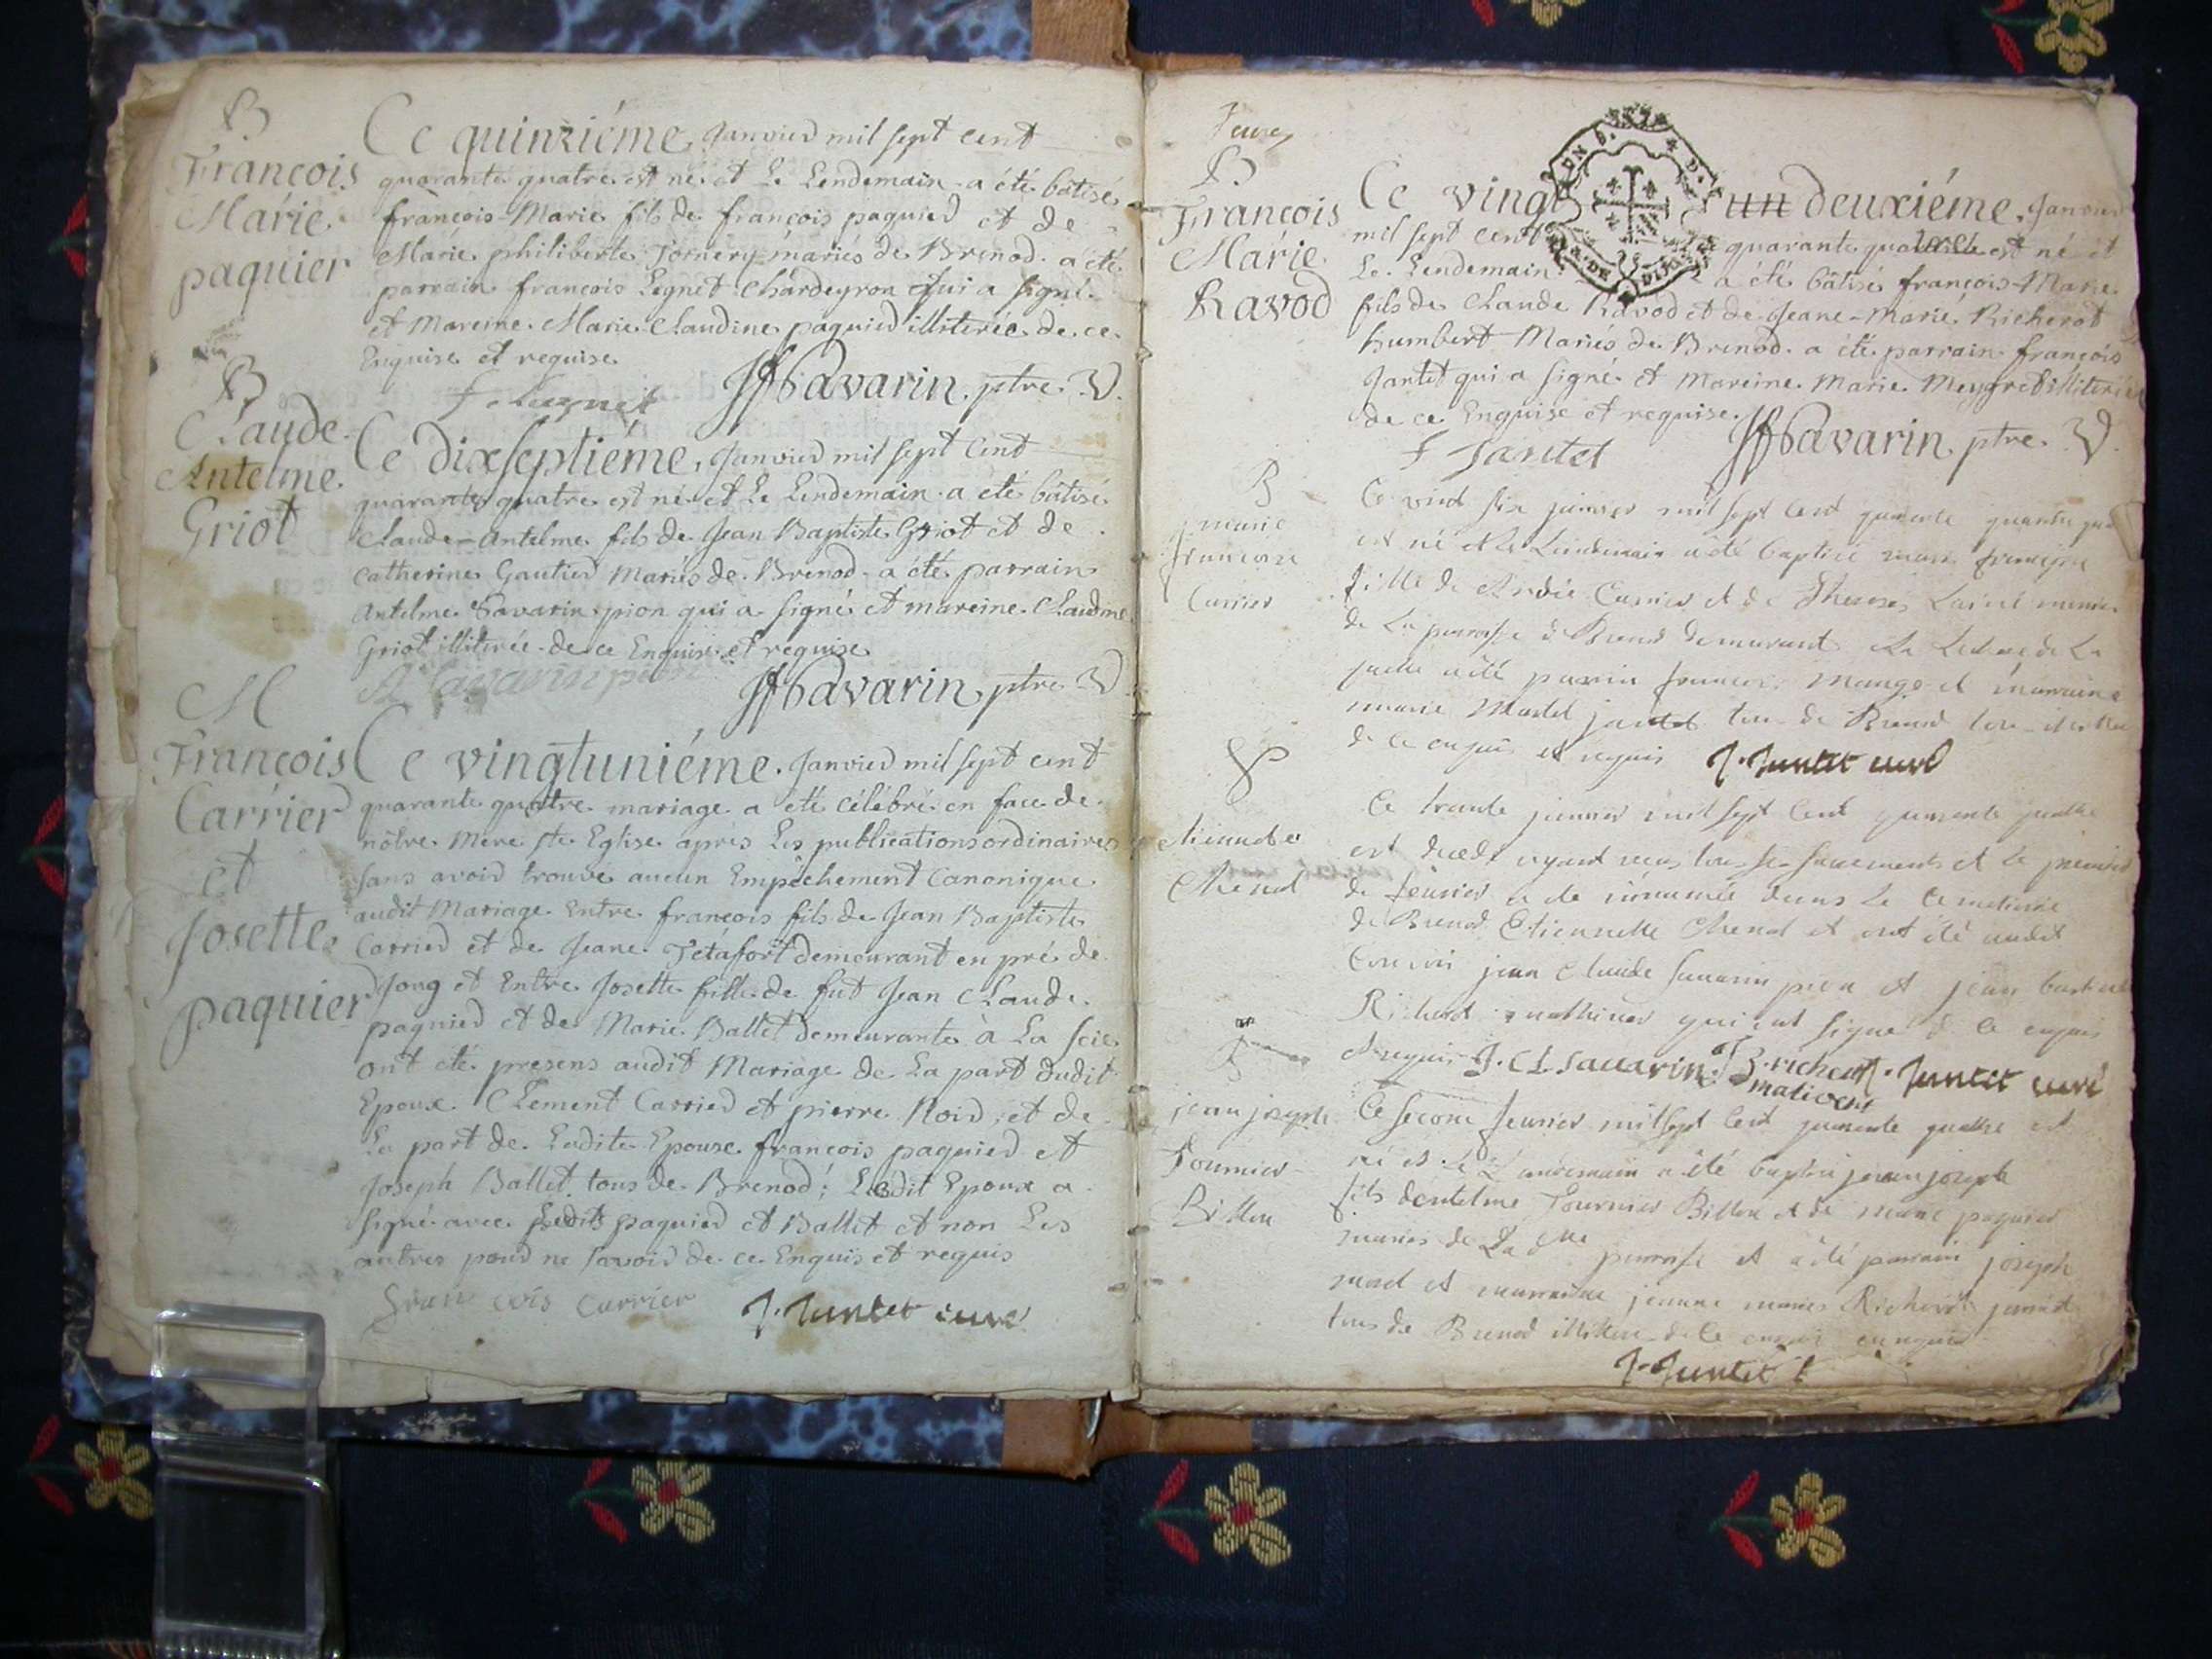 B
François
Marie
paquier
Ce quinziéme Janvier mil sept cent
quarante quatre est né et Le Lendemain a été bâtisé
françois-Marie fils de françois paquier et de
Marie philiberte Tornery mariés de Brenod a été
parrain françois Legnet Chardeyron qui a signé
et Mareine Marie Claudine paquier illiterée de ce
Enquise et requise
Savarin ptre V.
B
Claude
Antelme
Griot
Ce dixseptiéme Janvier mil sept cent
quarante quatre est né et Le Lendemain a eté bâtisé
Claude-Antelme fils de Jean Baptiste Griot et de
Catherine Gautier Mariés de Brenod a été parrain
Antelme Savarin pion qui a signé et mareine Claudine
Griot illiterée de ce Enquise et requise
A Savarin pion
Savarin ptre V
M
François
Carrier
et
Josette
paquier
Ce vingtuniéme Janvier mil sept cent
quarante quatre mariage a été célébré en face de
nôtre Mere ste Eglise après Les publications ordinaires
sans avoir trouvé aucun Empêchement Canonique
audit Mariage Entre françois fils de Jean Baptiste
Carrier et de Jeane Tétafort demeurant en pré de
Jong et Entre Josette fille de fut Jean Claude
paquier et de Marie Ballet demeurante à La scie
ont eté presens audit Mariage de La part dudit
Epoux Clement Carrier et pierre Roid, et de
La part de Ladite Epouse françois paquier et
Joseph Ballet tous de Brenod; Ledit Epoux a
signé avec Lesdits paquier et Ballet et non Les
autres pour ne savoir de ce Enquis et requis
Francois Carrier
J. Jantet curé
B
François
Marie
Ravod
Ce vingt un deuxiéme Janvier
mil sept cent quarante quatre est né et
Le Lendemain a été bâtisé françois-Marie
fils de Claude Ravod et de Jeane-Marie Richerot
humbert Mariés de Brenod a été parrain françois
Jantet qui a signé et Mareine Marie Meygret illiterée
de ce Enquise et requise
F Jantet
Savarin ptre V.
B
marie
francoise
Carrier
Ce vint six janvier mil sept cent quarante
est né et le Lendemain a été baptisé marie francoise
fille de Carrier et de
de La paroisse de Brenod demeurant
a été parrin francois et marraine
marie Martel jantet tous de Brenod
de ce enquis et requis
J. Jantet curé
Chenod
Ce trante janvier mil sept cent quarante quatre
est decedé ayant receu tous ses sacrements et le premier
de fevrier a été inhumée dans le cemetiere
de Brenod Etiennette Chenod et ont été audit
convoi jean claude savarin pion et jean
Richerot mathivet qui ont signé de ce enquis
et requis
J. CL savarin
B. richerot
mativet
J. Jantet curé
B
jean joseph
Tournier
Billon
Ce second fevrier mil sept cent quarante quatre est
né et Le Lendemain a été baptisé jean joseph
fils dantelme Tournier Billon et de marie paquier
mariés de La dte paroisse et a été parrain joseph
et marraine jeanne marie Richerot
tous de Brenod
J. Jantet